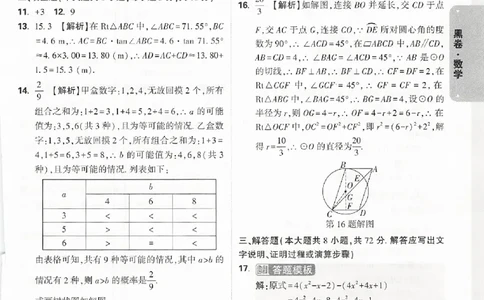 11. +3  12. 9
13. 15.3 【解析】在Rt△ABC中,∠ABC=71.55°,BC
=4.6 m,∴AC=BC·tan∠ABC=4.6·tan 71.55°
≈4.6×3.00=13.80(m),∴AD=AC+CD≈13.80+
1.5=15.3(m).
14. 2/9 【解析】甲盒数字:1,2,4,无放回摸2个,所有
组合之和为:1+2=3,1+4=5,2+4=6,∴a的可能
值为:3,5,6(共3种),且为等可能的情况.乙盒数
字:1,3,5,无放回摸2个,所有组合之和为:1+3=
4,1+5=6,3+5=8,∴b的可能值为:4,6,8(共3
种),且为等可能的情况.列表如下:
a b
4 6 8
3 < < <
5 > < <
6 > = <
由表格可知,共有9种等可能的情况,其中a>b的
情况有2种,则a>b的概率是2/9.
16. 20/3 【解析】如解图,连接BO并延长,交CD于点
F,交AC于点G,连接CO,∵DE所对圆心角的度
数为90°,∴∠ACD=45°,在▱ABCD中,AB∥CD,
AB=CD=4,∴∠BAG=∠ACD=45°,∵AB是⊙O
的切线,∴BF⊥AB,∴BF⊥CD,∴CF=DF=2,在
Rt△CGF中,∠GCF=45°,∴GF=CF=2,在
Rt△ABG中,∠BAG=45°,∴BG=AB=4,设⊙O的
半径为r,则OG=4-r,∴OF=4-r+2=6-r,∴在
Rt△OCF中,OC²=OF²+CF²,即r²=(6-r)²+2²,解
得r=10/3,∴⊙O的直径为20/3.
B A
E
O
G
C F D
第16题解图
三、解答题(本大题共8小题,共72分.解答应写出文
字说明、证明过程或演算步骤)
17. 答题模板
解:原式=4(x²-x-2)-(4x²+4x+1)
黑卷·数学